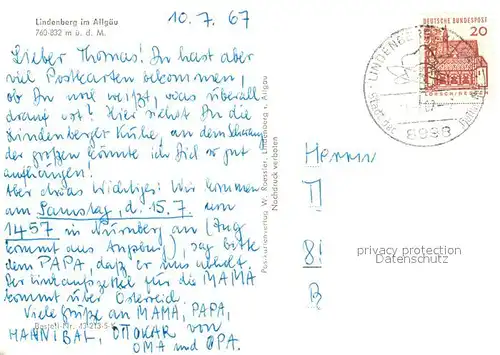 Lindenberg im Allgäu
760-832 m ü. d. M.
10.7.67
Lieber Thomas! Du hast aber
viel Postkarten bekommen,
ob Du nur weißt, was überall
drauf ist? Hier siehst Du die
Lindenberger Kühe, an dem Schwanz
der großen könnte ich Dich so gut
aufhängen!
Aber etwas Wichtiges: Wir kommen
am Samstag, d. 15.7. um
1457 in Nürnberg an (Zug
kommt aus Augsburg), sag bitte
dem PAPA, daß er uns abholt.
Der Umlaufzettel für die MAMA
kommt über Österreich.
Viele Grüße an MAMA, PAPA,
HANNIBAL, OTTOKAR von
OMA und OPA.
Bestell-Nr. 43213-S-K
Postkartenverlag W. Roessler, Lindenberg i. Allgäu
Nachdruck verboten
DEUTSCHE BUNDESPOST
20
LORSCH/HESSEN
LINDENBERG
8998
Herrn
T
8!
B
privacy protection
Datenschutz